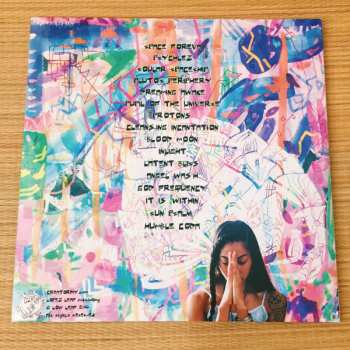 SPACE FOREVER
PSYCHLEZ
SOULAR SPACESHIP
PLUTOS PERIPHERY
DREAMING AWAKE
PEARL OF THE UNIVERSE
PROTONS
CLEANSING INCANTATION
BLOOD MOON
INLIGHT
LATENT BLISS
ANGEL WASH
GOD FREQUENCY
IT IS WITHIN
SUN PSALM
HUMBLE CODA
LOW LEAF